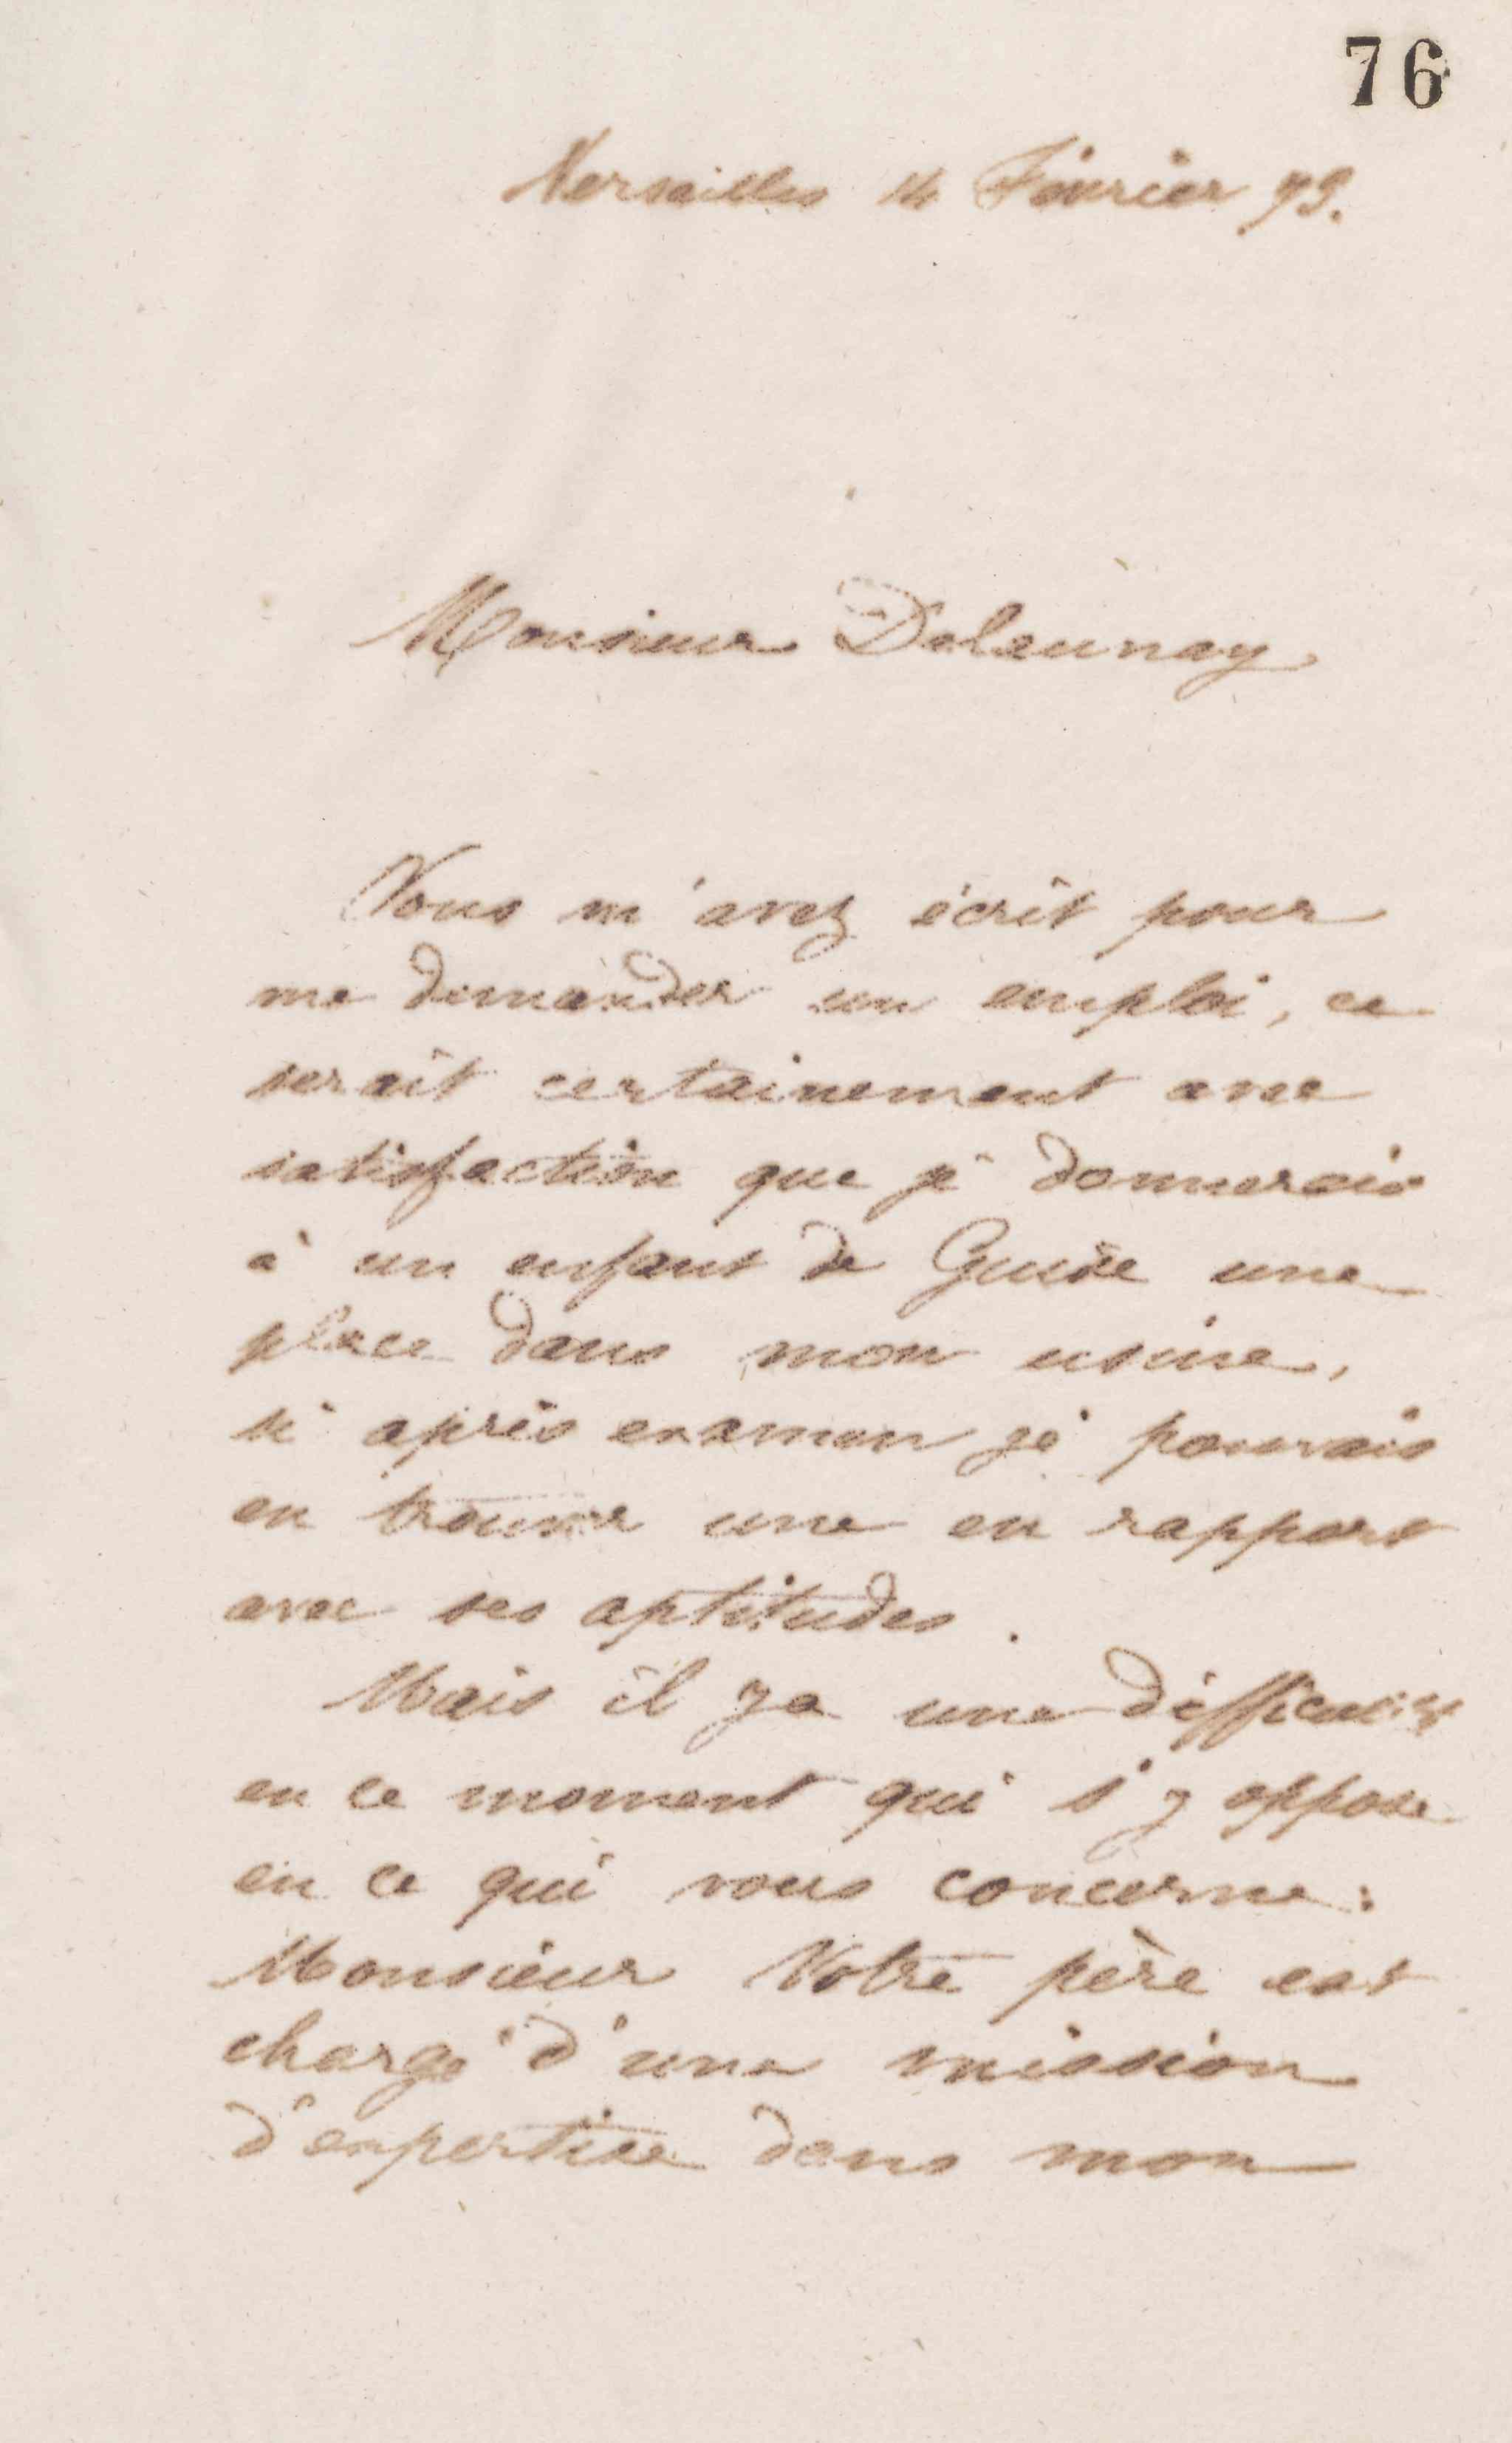 76
Versailles 14 Février 73.
Monsieur Delaunay
Vous m'avez écrit pour
me demander un emploi, ce
serait certainement avec
satisfaction que je donnerais
à un enfant de Guise une
place dans mon usine,
si après examen je pouvais
en trouver une en rapport
avec ses aptitudes.
Mais il y a une difficulté
en ce moment qui s'y oppose
en ce qui vous concerne:
Monsieur Votre père est
chargé d'une mission
d'expertise dans mon